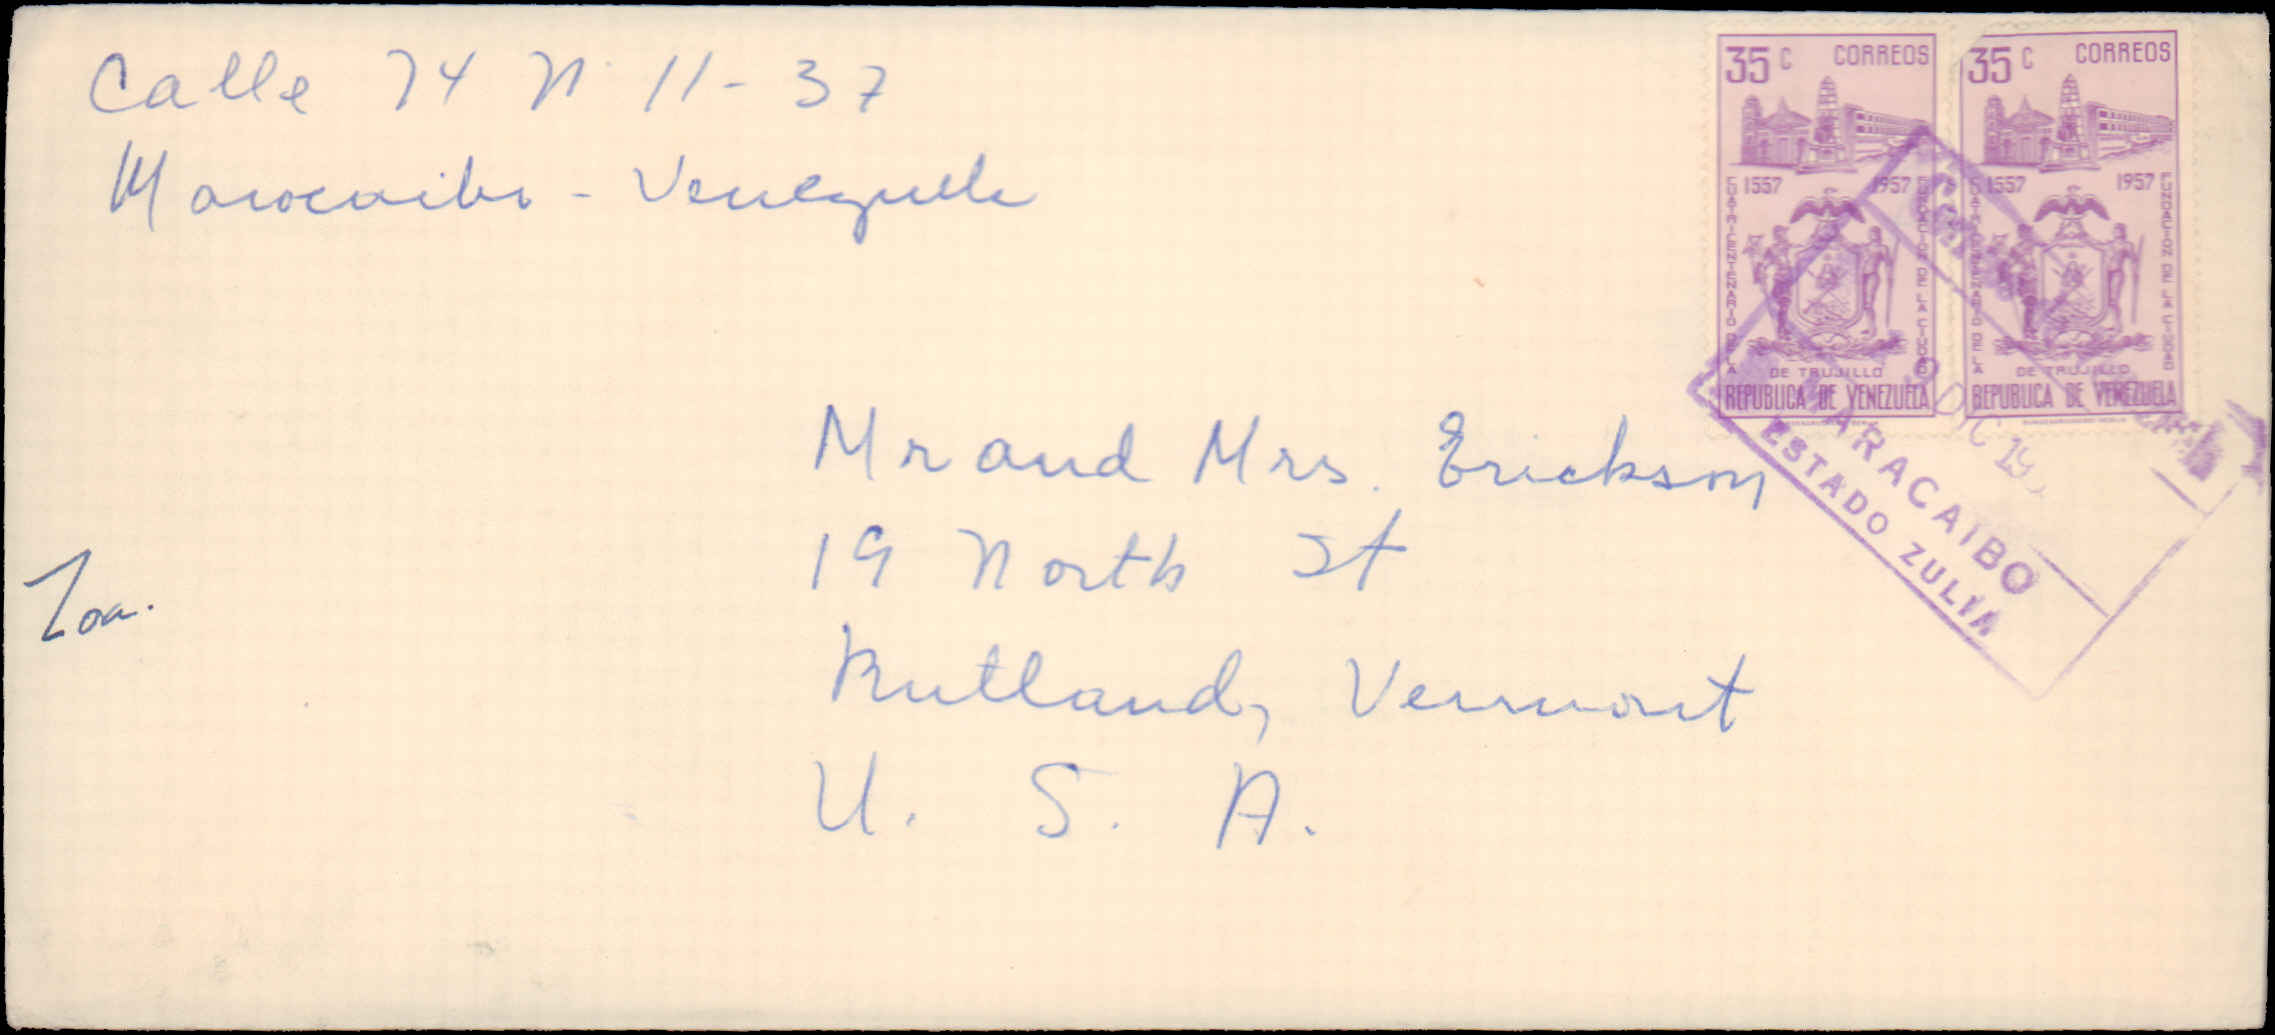 Calle 74 N 11-37
Maracaibo - Venezuela
Mr and Mrs. Erickson
19 North St
Rutland, Vermont
U. S. A.
35 C CORREOS
1557 1957
CUATRICENTENARIO DE LA
FUNDACION DE LA CIUDAD
DE TRUJILLO
REPUBLICA DE VENEZUELA
35 C CORREOS
1557 1957
CUATRICENTENARIO DE LA
FUNDACION DE LA CIUDAD
DE TRUJILLO
REPUBLICA DE VENEZUELA
MARACAIBO
ESTADO ZULIA